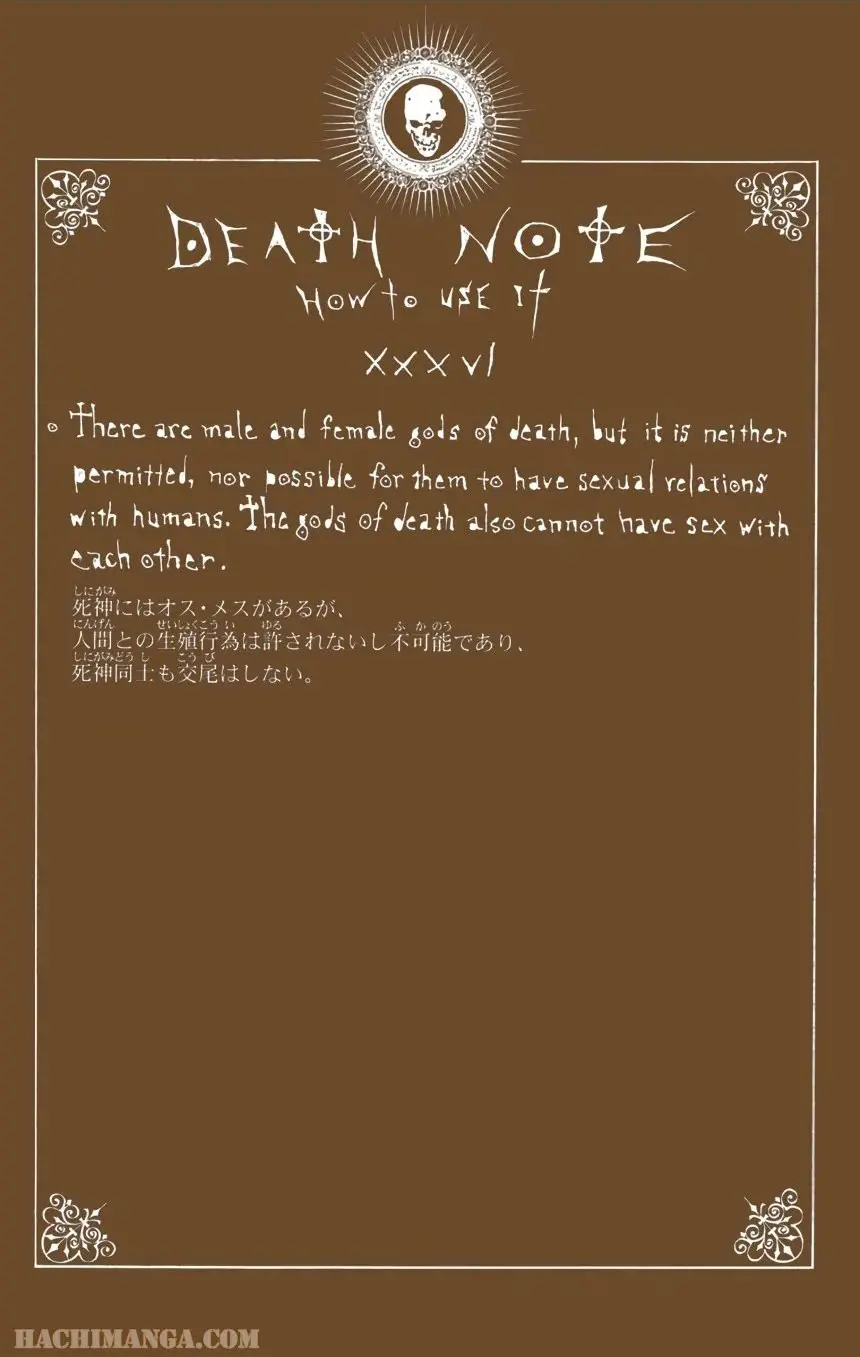 DEATH NOTE
HOW to USE It
XXXVI
There are male and female gods of death, but it is neither
permitted, nor possible for them to have sexual relations
with humans. The gods of death also cannot have sex with
each other.
しにがみ
死神にはオス・メスがあるが、
にんげん せいしょくこう い ゆる ふ か のう
人間との生殖行為は許されないし不可能であり、
しにがみどう し こう び
死神同士も交尾はしない。
HACHIMANGA.COM